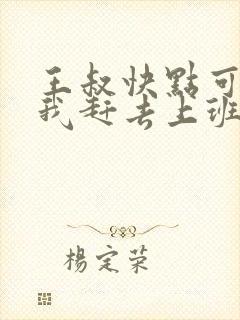 王叔快點可
我赶去上班
楊定荣